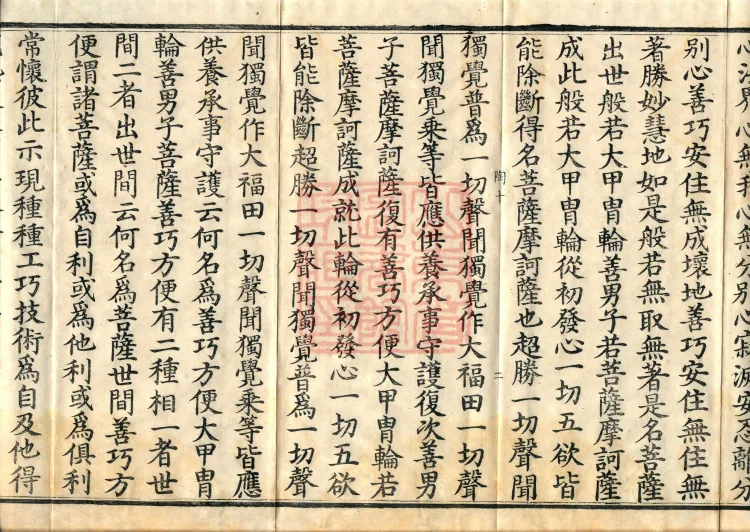 心法界心無我心無分别心寂滅安忍離分
别心善巧安住無成壞地善巧安住無住無
著勝妙慧地如是般若無取無著是名菩薩
出世般若大甲冑輪善男子若菩薩摩訶薩
成此般若大甲冑輪從初發心一切五欲皆
能除斷得名菩薩摩訶薩也超勝一切聲聞
陶十 二
獨覺普爲一切聲聞獨覺作大福田一切聲
聞獨覺乘等皆應供養承事守護復次善男
子菩薩摩訶薩復有善巧方便大甲冑輪若
菩薩摩訶薩成就此輪從初發心一切五欲
皆能除斷超勝一切聲聞獨覺普爲一切聲
聞獨覺作大福田一切聲聞獨覺乘等皆應
供養承事守護云何名爲善巧方便大甲冑
輪善男子菩薩善巧方便有二種相一者世
間二者出世間云何名爲菩薩世間善巧方
便謂諸菩薩或爲自利或爲他利或爲俱利
常懷彼此示現種種工巧技術爲自及他得